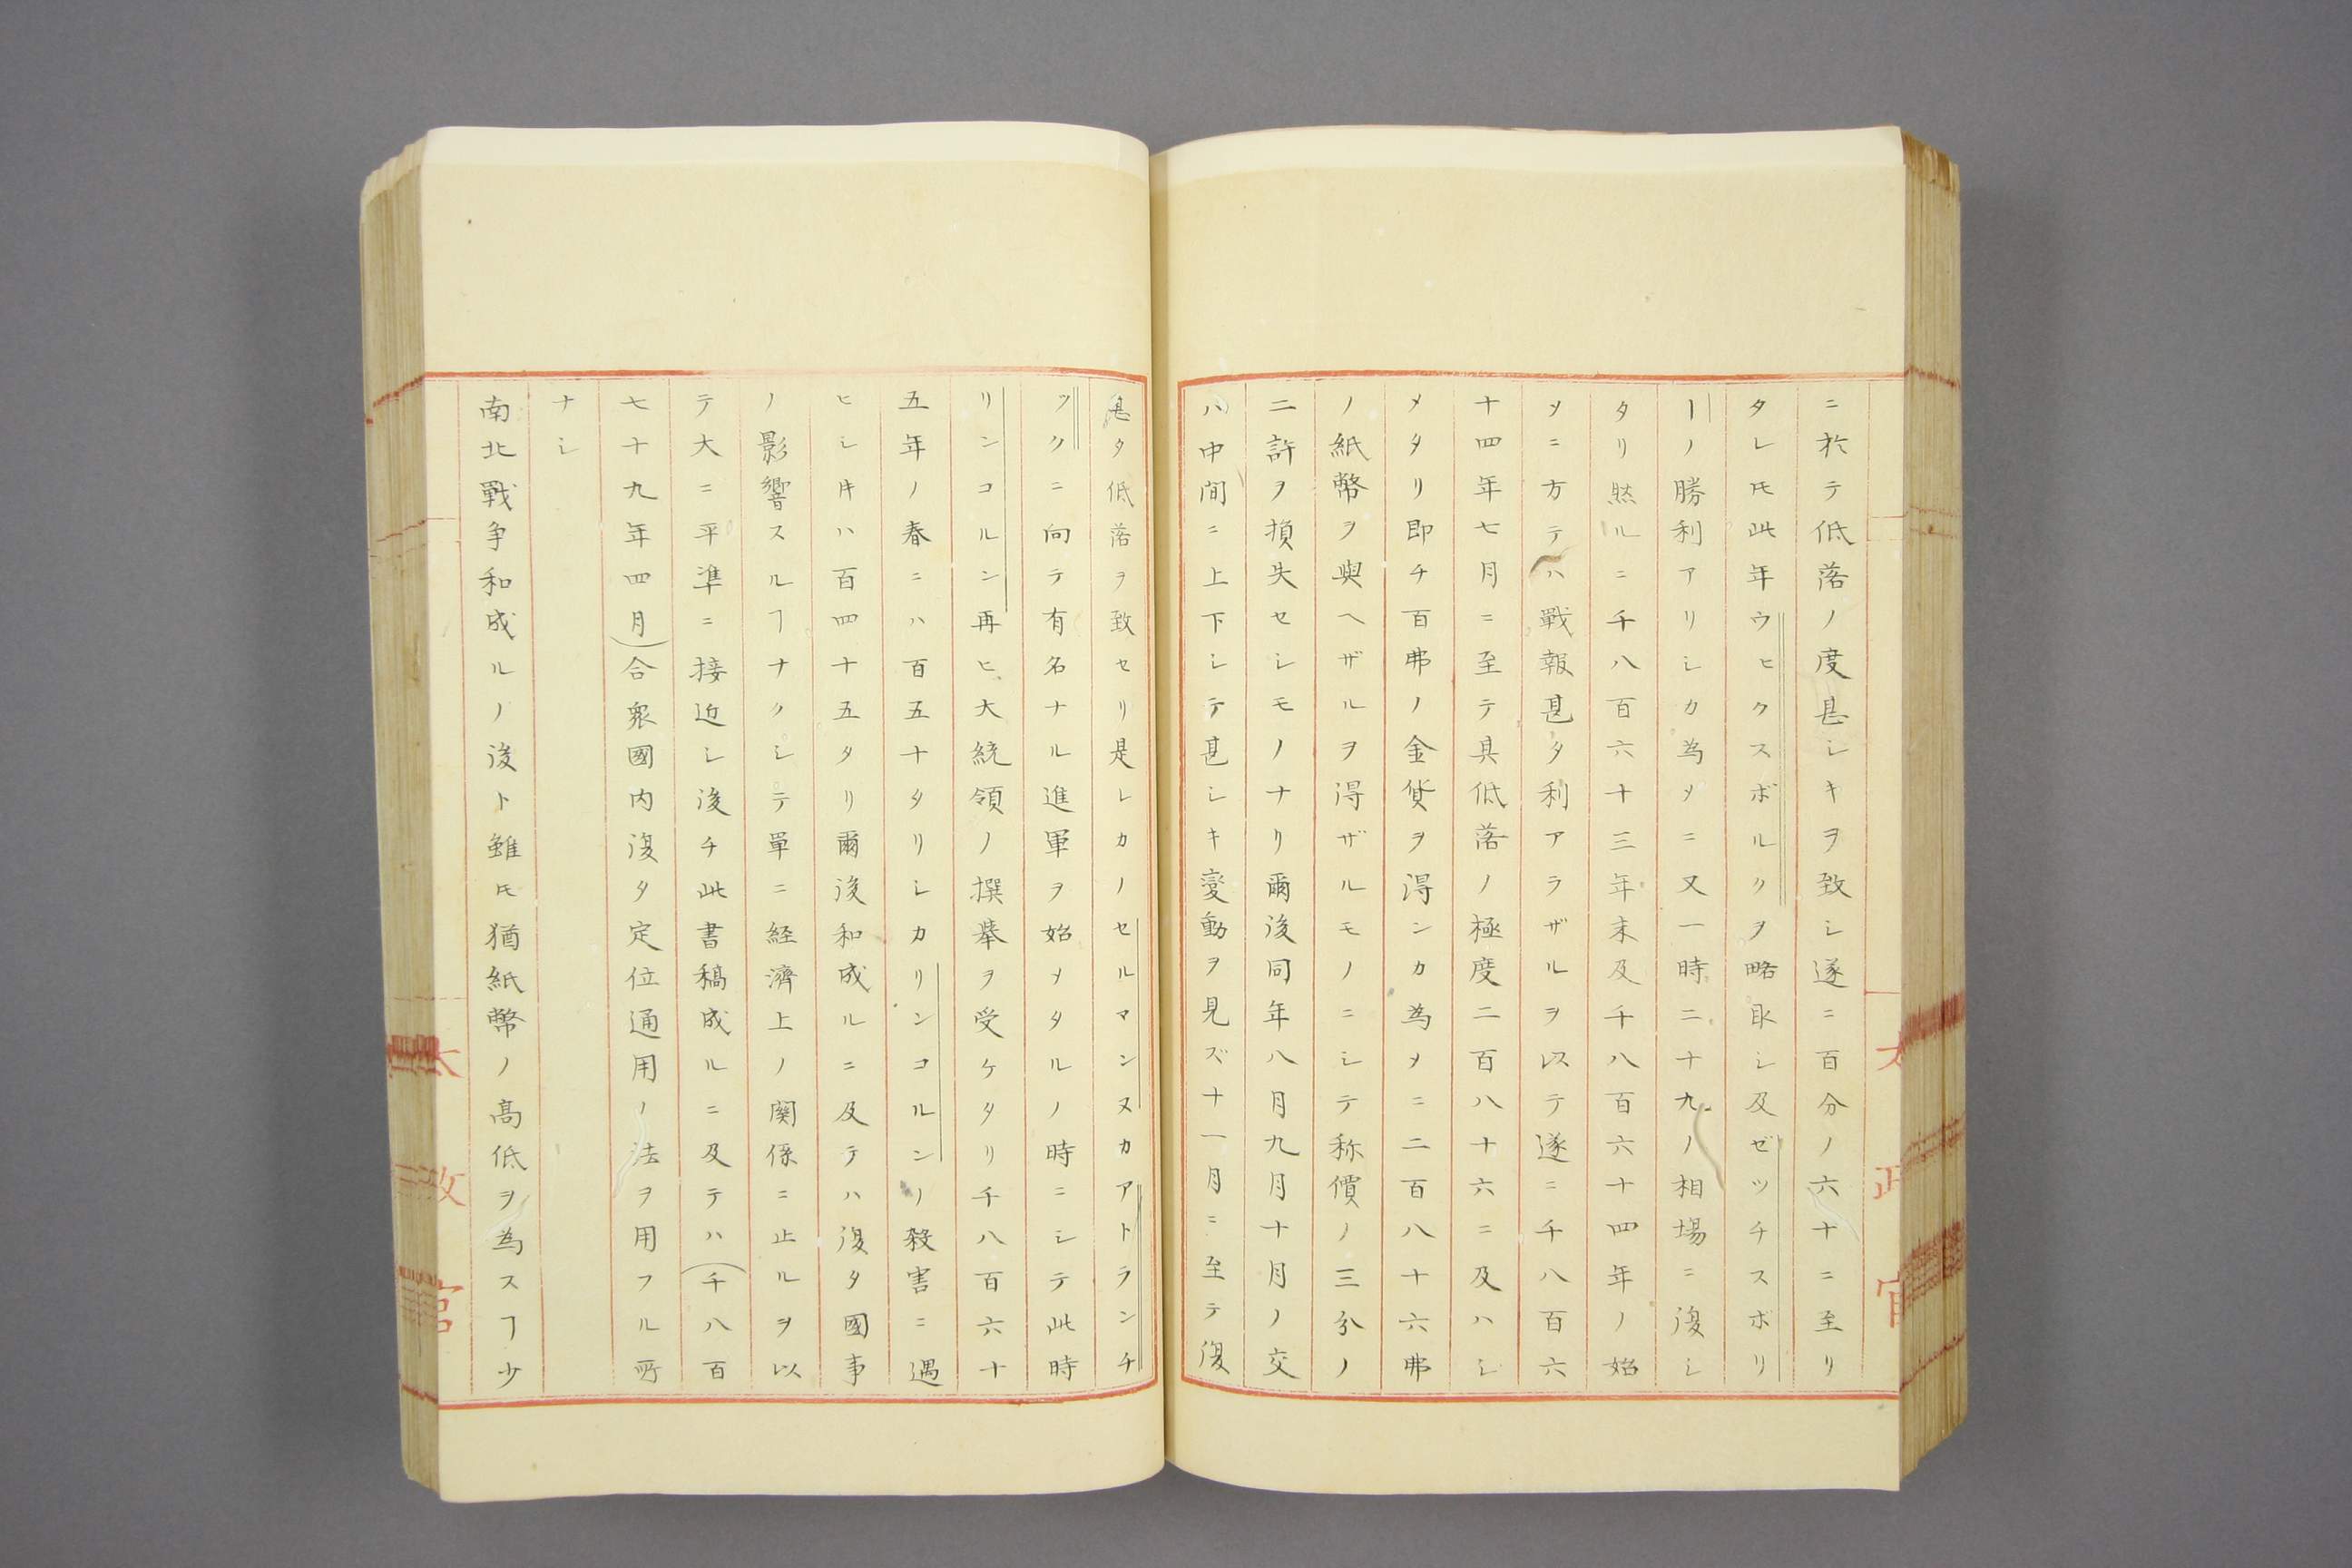 ニ於テ低落ノ度甚シキヲ致シ遂ニ百分ノ六十ニ至リ
タレ𪜈此年ウヒクスボルクヲ略取シ及ゼツチスボリ
ーノ勝利アリシカ為メニ又一時二十九ノ相場ニ復シ
タリ然ルニ千八百六十三年末及千八百六十四年ノ始
メニ方テハ戰報甚タ利アラザルヲ以テ遂ニ千八百六
十四年七月ニ至テ其低落ノ極度二百八十六ニ及ハシ
メタリ即チ百弗ノ金貨ヲ得ンカ為メニ二百八十六弗
ノ紙幣ヲ與ヘザルヲ得ザルモノニシテ称價ノ三分ノ
二許ヲ損失セシモノナリ爾後同年八月九月十月ノ交
ハ中間ニ上下シテ甚シキ變動ヲ見ズ十一月ニ至テ復
甚タ低落ヲ致セリ是レカノセルマンヌカアトランチ
ツクニ向テ有名ナル進軍ヲ始メタルノ時ニシテ此時
リンコルン再ヒ大統領ノ撰擧ヲ受ケタリ千八百六十
五年ノ春ニハ百五十タリシカリンコルンノ殺害ニ遇
ヒシ𪜈ハ百四十五タリ爾後和成ルニ及テハ復タ國事
ノ影響スルヿナクシテ單ニ経濟上ノ関係ニ止ルヲ以
テ大ニ平準ニ接近シ後チ此書稿成ルニ及テハ(千八百
七十九年四月)合衆國内復タ定位通用ノ法ヲ用フル所
ナシ
南北戰争和成ルノ後ト雖𪜈猶紙幣ノ高低ヲ為スヿ少
太政官
太政官